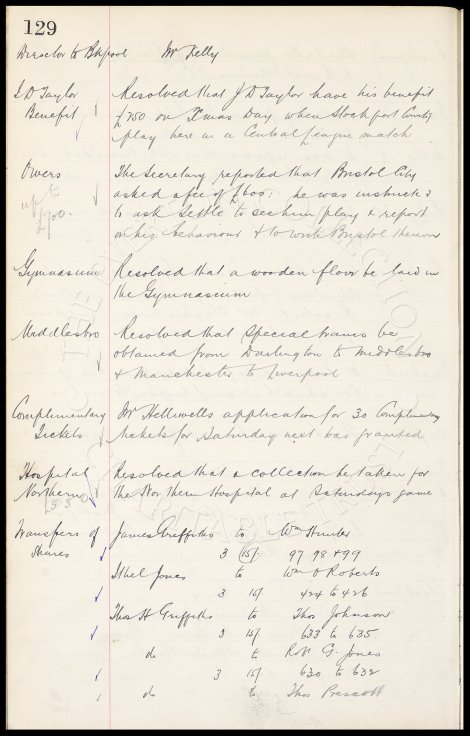 129
Director to B'kpool Mr Kelly
J D Taylor Resolved that J D Taylor have his benefit
Benefit £750 on Xmas Day when Stockport County
play here in a Central League match
Owers The Secretary reported that Bristol City
up to asked a fee of £600: he was instructed
£700. to ask Settle to see him play & report
on his behaviour & to write Bristol thereon
Gymnasium Resolved that a wooden floor be laid in
the Gymnasium
Middlesbro Resolved that special trains be
obtained from Darlington to Middlesbro
& Manchester to Liverpool
Complimentary Mr Helliwells application for 30 Complimentary
Tickets tickets for Saturday next was granted
Hospital Resolved that a collection be taken for
Northern the Northern Hospital at Saturdays game
£5-5
Transfers of James Griffiths to Wm Hunter
Shares 3 15/ 97 98 & 99
Ithel Jones to Wm O Roberts
3 15/ 424 to 426
Thos H Griffiths to Thos Johnson
3 15/ 633 to 635
do to Robt G. Jones
3 15/ 630 to 632
do to Thos Prescott